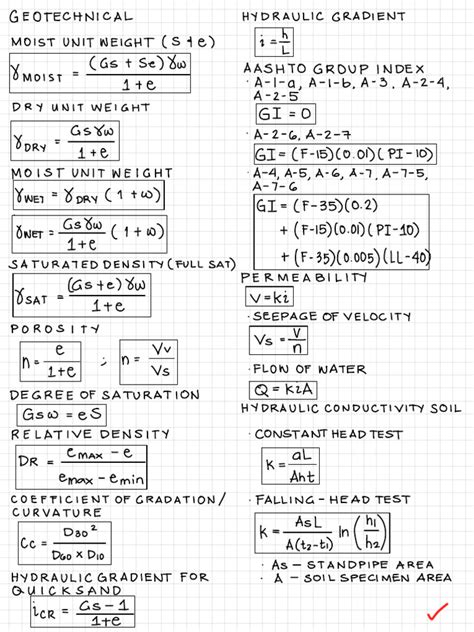 GEOTECHNICAL
MOIST UNIT WEIGHT (S & e)
γMOIST = (Gs + Se)γw / 1+e
DRY UNIT WEIGHT
γDRY = Gsγw / 1+e
MOIST UNIT WEIGHT
γWET = γDRY (1+ω)
γWET = Gsγw / 1+e (1+ω)
SATURATED DENSITY (FULL SAT)
γSAT = (Gs+e)γw / 1+e
POROSITY
n = e / 1+e ; n = Vv / Vs
DEGREE OF SATURATION
Gsω = eS
RELATIVE DENSITY
DR = emax - e / emax - emin
COEFFICIENT OF GRADATION/
CURVATURE
Cc = D30² / D60 x D10
HYDRAULIC GRADIENT FOR
QUICKSAND
iCR = Gs-1 / 1+e
HYDRAULIC GRADIENT
i = h / L
AASHTO GROUP INDEX
· A-1-a, A-1-b, A-3, A-2-4,
A-2-5
GI = 0
· A-2-6, A-2-7
GI = (F-15)(0.01)(PI-10)
· A-4, A-5, A-6, A-7, A-7-5,
A-7-6
GI = (F-35)(0.2)
+ (F-15)(0.01)(PI-10)
+ (F-35)(0.005)(LL-40)
PERMEABILITY
V = ki
· SEEPAGE OF VELOCITY
Vs = V / n
· FLOW OF WATER
Q = KiA
HYDRAULIC CONDUCTIVITY SOIL
· CONSTANT HEAD TEST
K = aL / Aht
· FALLING - HEAD TEST
K = AsL / A(t2-t1) ln (h1 / h2)
· As - STANDPIPE AREA
· A - SOIL SPECIMEN AREA